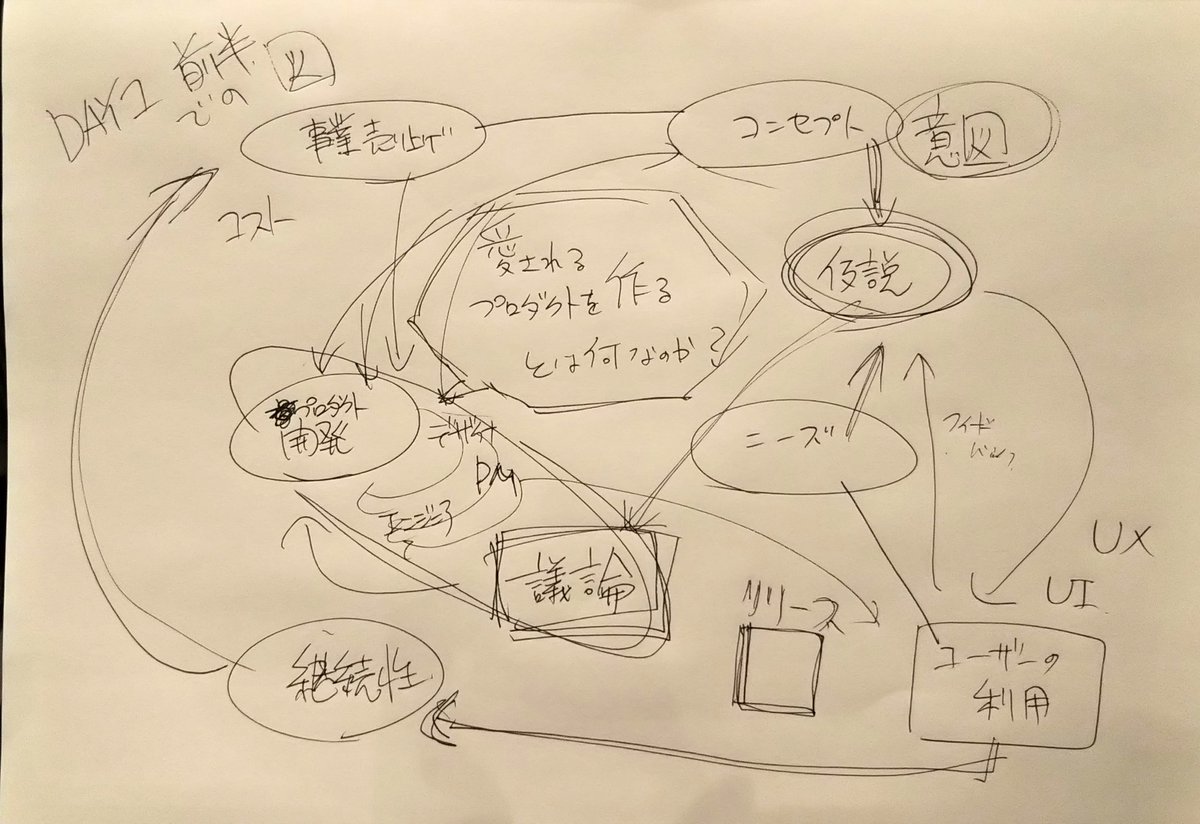 DAY1 前半
での 図
事業売り上げ
コンセプト
意図
コスト
仮説
愛される
プロダクトを作る
とは何なのか?
プロダクト
開発
デザイナ
PM
エンジニア
ニーズ
フィード
バック
議論
UX
UI
リリース
ユーザーの
利用
継続性